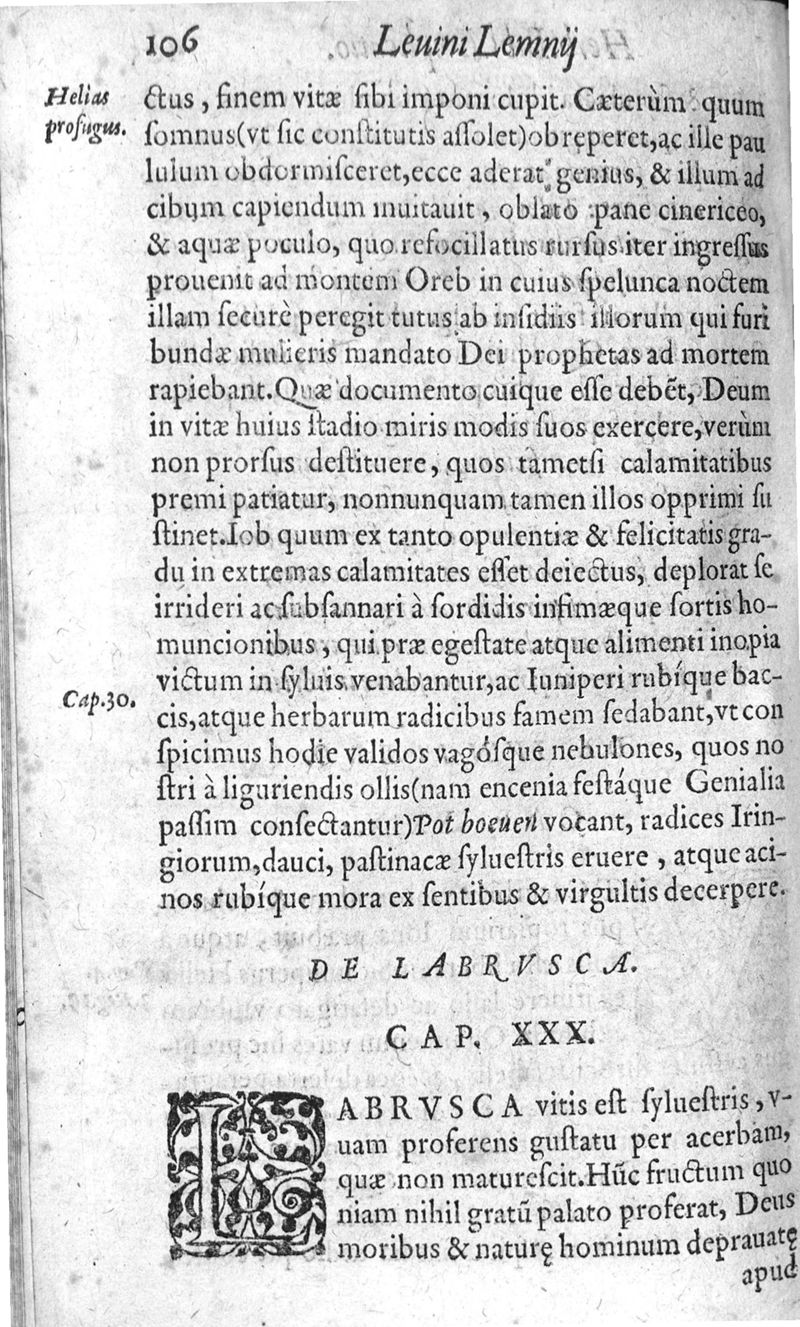 106 Leuini Lemnij
Helias
profugus.
ctus, finem vitæ ſibi imponi cupit. Cæterùm quum
ſomnus(vt ſic conſtitutis aſſolet)obręperet,ac ille pau
lulum obdormiſceret,ecce aderat genius, & illum ad
cibum capiendum inuitauit, oblato pane cinericeo,
& aquæ poculo, quo refocillatus rurſus iter ingreſſus
prouenit ad montem Oreb in cuius ſpelunca noctem
illam ſecurè peregit tutus ab inſidiis illorum qui furi
bundæ mulieris mandato Dei prophetas ad mortem
rapiebant.Quæ documento cuique eſſe debẽt, Deum
in vitæ huius ſtadio miris modis ſuos exercere,verùm
non prorſus deſtituere, quos tametſi calamitatibus
premi patiatur, nonnunquam tamen illos opprimi ſu
ſtinet.Iob quum ex tanto opulentiæ & felicitatis gra-
du in extremas calamitates eſſet deiectus, deplorat ſe
irrideri ac ſubſannari à ſordidis infimæque ſortis ho-
muncionibus, qui præ egeſtate atque alimenti inopia
victum in ſyluis venabantur,ac Iuniperi rubíque bac-
Cap.30.
cis,atque herbarum radicibus famem ſedabant,vt con
ſpicimus hodie validos vagóſque nebulones, quos no
ſtri à liguriendis ollis(nam encenia feſtáque Genialia
paſſim conſectantur)Pot boeuen vocant, radices Irin-
giorum,dauci, paſtinacæ ſylueſtris eruere, atque aci-
nos rubíque mora ex ſentibus & virgultis decerpere.
DE LABRVSCA.
CAP. XXX.
LABRVSCA vitis eſt ſylueſtris, v-
uam proferens guſtatu per acerbam,
quæ non matureſcit.Hũc fructum quo
niam nihil gratũ palato proferat, Deus
moribus & naturę hominum deprauatę
apud